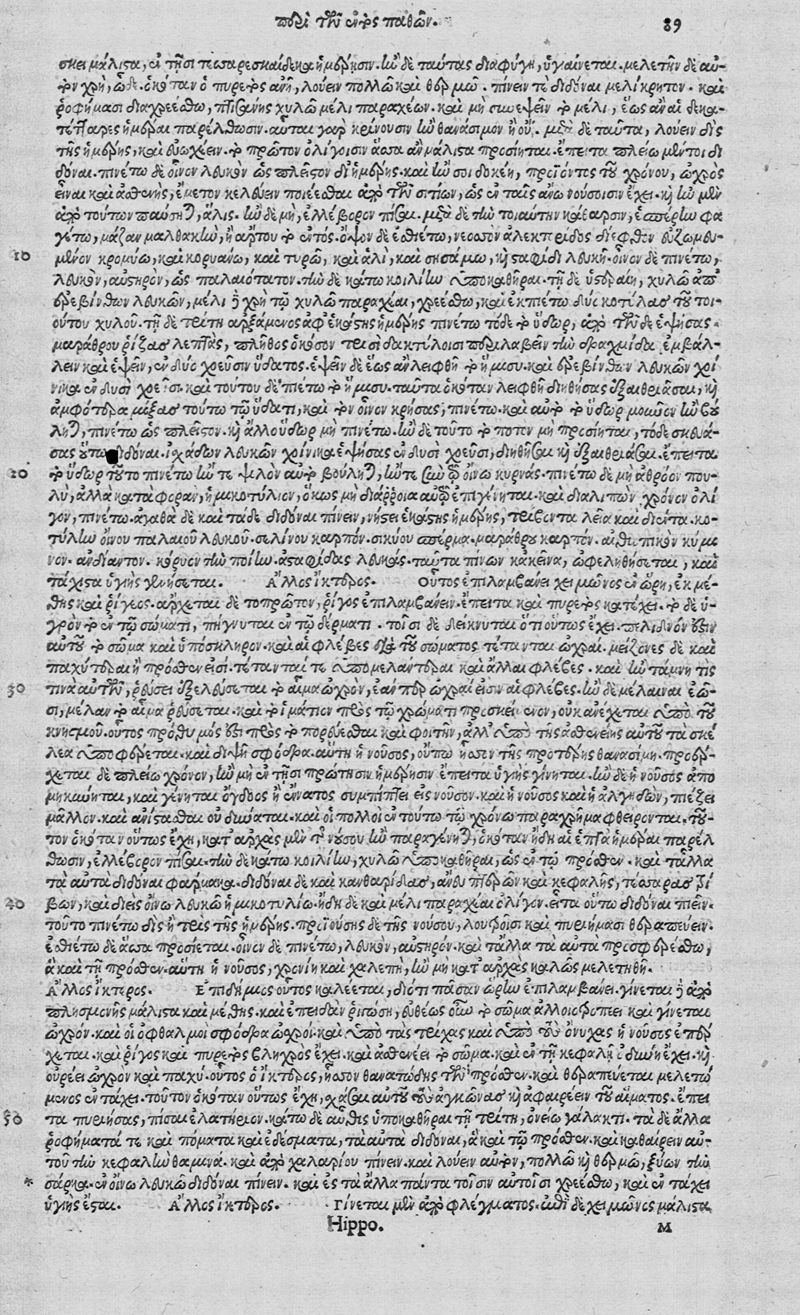 περὶ τῶν ἐντὸς παθῶν. 89
σκει μάλιστα, ἐν τῇσι τεσσαρεσκαίδεκα ἡμέρῃσιν. ἢν δὲ ταύτας διαφύγῃ, ὑγιαίνεται. μελετῆν δὲ αὐ-
τὸν χρὴ, ὧδε. ὁκόταν ὁ πυρετὸς ἀνῇ, λούειν πολλῶ καὶ θερμῶ. πίνειν τε διδόναι μελίκρητον. καὶ
ῥοφήμασι διαχρεέσθω, πτισάνης χυλῶ μέλι παραχέων. καὶ μὴ συνεψεῖν τὸ μέλι, ἕως ἂν αἱ δεκα-
τέσσαρες ἡμέραι παρέλθωσιν. αὗται γὰρ κρίνουσιν ἢν θανάσιμον ἢ οὔ. μετὰ δὲ ταῦτα, λούειν δὶς
τῆς ἡμέρης, καὶ εὐωχέειν. τὸ πρῶτον ὀλίγοισιν ἅσσα ἂν μάλιστα προσίηται. ἔπειτα πλείω μέντοι δι
δόναι. πινέτω δὲ οἶνον λευκὸν ὡς πλεῖστον δι' ἡμέρης. καὶ ἤν σοι δοκέῃ, προϊόντος τοῦ χρόνου, ὠχρὸς
εἶναι καὶ ἀσθενὴς, ἔμετον κελεύειν ποιέεσθαι ἀπὸ τῶν σιτίων, ὡς ἐν ταῖς ἄνω νούσοισιν ἔχει. κἢν μὲν
ἀπὸ τούτων παύσηται, ἅλις. ἢν δὲ μὴ, ἐλλέβορον πῖσαι. μετὰ δὲ τὴν τοιαύτην κάθαρσιν, ἑσπέρην φα
γέτω, μᾶζαν μαλθακὴν, ἢ ἄρτου τὸ ἐντός. ὄψον δὲ ἐσθιέτω, νεοσσὸν ἀλεκτορίδος δίεφθον ἐζωμευ-
10 μένον κρομύω, καὶ κοριάνω, καὶ τυρῶ, καὶ ἁλὶ, καὶ σησάμω, κἢ σταφίδι λευκῇ. οἶνον δὲ πινέτω,
λευκὸν, αὐστηρὸν, ὡς παλαιότατον. τὴν δὲ κάτω κοιλίην ὑποκαθῆραι. τῇ δὲ ὑστεραίῃ, χυλῶ ἀπ'
ἐρεβίνθων λευκῶν, μέλι δὲ χρὴ τῶ χυλῶ παραχέαι, χρεέσθω, καὶ ἐκπιέτω δύο κοτύλας τοῦ τοι-
ούτου χυλοῦ. τῇ δὲ τρίτῃ ἀρξάμενος ἀφ' ἑκάστης ἡμέρης πινέτω τόδε τὸ ὕδωρ, ἀπὸ τῶν δὲ ἑψήσας.
μαράθρου ῥίζας λεπτὰς, πλῆθος ὁκόσον τρισὶ δακτύλοισι περιλαβεῖν τὴν δραχμίδα ἐμβάλ-
λειν καὶ ἑψεῖν, ἐν δυσὶ χοεῦσιν ὕδατος. ἑψεῖν δὲ ἕως ἂν λειφθῇ τὸ ἥμισυ. καὶ ἐρεβίνθων λευκῶν χοί
νικα ἐν δυσὶ χοεῦσι. καὶ τούτου δὲ πιέτω τὸ ἥμισυ. ταῦτα ὁκόταν λειφθῇ διηθήσας ἐξαιθριάσαι, κἢ
ἀμφότερα μίξας τούτω τῶ ὕδατι, καὶ τὸν οἶνον κρήσας, πινέτω. καὶ αὐτὸ τὸ ὕδωρ μοῦνον ἢν βού
ληται, πινέτω ὡς πλεῖστον. κἢ ἄλλο ὕδωρ μὴ πινέτω. ἢν δὲ τοῦτο τὸ ποτὸν μὴ προσίηται, τόδε σκευά-
σας οὕτω διδόναι. ἰσχάδων λευκῶν χοίνικα ἑψήσας ἐν δυσὶ χοεῦσι, διηθῆσαι κἢ ἐξαιθριάσαι. ἔπειτα
20 τὸ ὕδωρ τοῦτο πινέτω ἤν τε ψιλὸν αὐτὸ βούληται, ἤν τε σὺν τῶ οἴνω κιρνάς. πινέτω δὲ μὴ ἀθρόον που-
λὺ, ἀλλὰ κατὰ φορὰν, ἡμικοτύλιον, ὅκως μὴ διάρροια αὐτῶ ἐπιγένηται. καὶ διαλιπὼν χρόνον ὀλί
γον, πινέτω. ἀγαθὰ δὲ καὶ τάδε διδόναι πίνειν, νήστει ἑκάστης ἡμέρης, τρίβοντα λεῖα καὶ διέντα. κο-
τύλην οἴνου παλαιοῦ λευκοῦ. σελίνου καρπόν. σικύου σπέρμα. μαράθρου καρπόν. αἰθιοπικὸν κύμι
νον. ἀδίαντον. κόριον τὴν ποίην. ἀσταφίδας λευκάς. ταῦτα πίνων κἀκεῖνα, ὠφεληθήσεται, καὶ
τάχιστα ὑγιὴς γενήσεται. Ἄλλος ἴκτερος. Οὗτος ἐπιλαμβάνει χειμῶνος ἐν ὥρῃ, ἐκ μέ-
θης καὶ ῥίγεος. ἄρχεται δὲ τὸ πρῶτον, ῥῖγος ἐπιλαμβάνειν. ἔπειτα καὶ πυρετὸς κατέχει. τὸ δὲ ὑ-
γρὸν τὸ ἐν τῶ σώματι, πήγνυται ἐν τῶ δέρματι. τοῖσι δὲ δείκνυται ὅτι οὕτως ἔχει. πελιδνόν ἐστιν
αὐτοῦ τὸ σῶμα καὶ ὑπόσκληρον. καὶ αἱ φλέβες διὰ τοῦ σώματος τέτανται ὠχραί. μείζονες δὲ καὶ
παχύτεραι ἢ πρόσθεν εἰσί. τέτανταί τε ὑπομελάντεραι καὶ ἄλλαι φλέβες. καὶ ἢν τάμνῃ τις
30 τινὰ αὐτῶν, ῥεύσει ἐξελεύσεται τὸ αἷμα ὠχρὸν, ἐάν περ ὠχραί εἰσιν αἱ φλέβες. ἢν δὲ μέλαιναι ἔω-
σι, μέλαν τὸ αἷμα ῥεύσεται. καὶ τὸ ἱμάτιον πρὸς τῶ χρώματι προσκείμενον, οὐκ ἀνέχεται ὑπὸ τοῦ
κνησμοῦ. οὗτος πρόθυμός ἐστι πρὸς τὸ πορεύεσθαι καὶ φοιτῆν, ἀλλ' ὑπὸ τῆς ἀσθενείης αὐτοῦ τὰ σκέ
λεα ὑποφέρεται. καὶ διψῇ σφόδρα. αὕτη ἡ νοῦσος, οὔπω ἧσσον τῆς προτέρης θανασίμη. προέρ-
χεται δὲ πλείω χρόνον, ἢν μὴ ἐν τῇσι πρώτῃσιν ἡμέρῃσιν ἔπειτα ὑγιὴς γίνηται. ἢν δὲ ἡ νοῦσος ἀπο
μηκύνηται, καὶ γένηται ὄγδοος ἢ ἔνατος συμπίπτει εἰς νοῦσον. καὶ ἡ νοῦσος καὶ ἡ ἀλγηδὼν, πιέζει
μᾶλλον. καὶ ἀνίστασθαι οὐ δύναται. καὶ οἱ πολλοὶ ἐν τούτω τῶ χρόνω παραχρῆμα φθείρονται. τοῦ-
τον ὁκόταν οὕτως ἔχῃ, κατ' ἀρχὰς μὲν τῆς νούσου ἢν παραγένῃ, ὁκόταν ἤδη αἱ ἑπτὰ ἡμέραι παρέλ
θωσιν, ἐλλέβορον πῖσαι. τὴν δὲ κάτω κοιλίην, χυλῶ ὑποκαθῆραι, ὡς ἐν τῶ πρόσθεν. καὶ τἆλλα
τὰ αὐτὰ διδόναι φάρμακα. διδόναι δὲ καὶ κανθαρίδας, ἄνευ πτερῶν καὶ κεφαλῆς, τέσσαρας τρί
40 βων, καὶ διεὶς οἴνω λευκῶ ἡμικοτυλίω. ἤδη δὲ καὶ μέλι παραχέαι ὀλίγον. εἶτα οὕτω διδόναι πιεῖν.
τοῦτο πινέτω δὶς ἢ τρὶς τῆς ἡμέρης. προϊούσης δὲ τῆς νούσου, λουτροῖσι καὶ πυριήμασι θεραπεύειν.
ἐσθιέτω δὲ ἅσσα προσίεται. οἶνον δὲ πινέτω, λευκὸν, αὐστηρόν. καὶ τἆλλα τὰ αὐτὰ προσφερέσθω,
ἃ καὶ τῇ πρόσθεν. αὕτη ἡ νοῦσος, χρονίη καὶ χαλεπὴ, ἢν μὴ κατ' ἀρχὰς καλῶς μελετηθῇ.
Ἄλλος ἴκτερος. Επιδήμιος οὗτος καλέεται, διότι πᾶσαν ὥρην ἐπιλαμβάνει. γίνεται δὲ ἀπὸ
πλησμονῆς μάλιστα καὶ μέθης. καὶ ἐπειδὰν ῥιγώσῃ, εὐθέως οὕτω τὸ σῶμα ἀλλοιοτροπεῖ καὶ γίνεται
ὠχρόν. καὶ οἱ ὀφθαλμοὶ σφόδρα ὠχροί. καὶ ὑπὸ τὰς τρίχας καὶ ὑπὸ τοὺς ὄνυχας ἡ νοῦσος ἐπέρ
χεται. καὶ ῥῖγος καὶ πυρετὸς βληχρὸς ἔχει. καὶ ἀσθενέει τὸ σῶμα. καὶ ἐν τῇ κεφαλῇ ὀδύνη ἔχει. κἢ
οὐρέει ὠχρὸν καὶ παχύ. οὗτος ὁ ἴκτερος, ἧσσον θανατώδης τῶν πρόσθεν. καὶ θεραπεύεται μελετώ
μενος ἐν τάχει. τοῦτον ὁκόταν οὕτως ἔχῃ, σχάσαι αὐτοῦ τοὺς ἀγκῶνας κἢ ἀφαιρέειν τοῦ αἵματος. ἔπει
50 τα πυριήσας, πῖσαι ἐλατήριον. κάτω δὲ αὖθις ὑποκαθῆραι τῇ τρίτῃ, ὀνείω γάλακτι. τὰ δὲ ἄλλα
ῥοφήματά τε καὶ πόματα καὶ ἐδέσματα, ταὐτὰ διδόναι, ἃ καὶ τῶ πρόσθεν. καὶ καθαίρειν αὐ-
τοῦ τὴν κεφαλὴν θαμινά. καὶ ἀπὸ χαλαρίου πίνειν. καὶ λούειν αὐτὸν, πολλῶ κἢ θερμῶ, ξύων τὴν
* σάρκα. ἐν οἴνω λευκῶ διδόναι πίνειν. καὶ ἐς τὰ ἄλλα πάντα τοῖσιν αὐτοῖσι χρεέσθω, καὶ ἐν τάχει
ὑγιὴς ἔσται. Ἄλλος ἴκτερος. Γίνεται μὲν ἀπὸ φλέγματος. αὐξεῖ δὲ χειμῶνος μάλιστα
Hippo. M